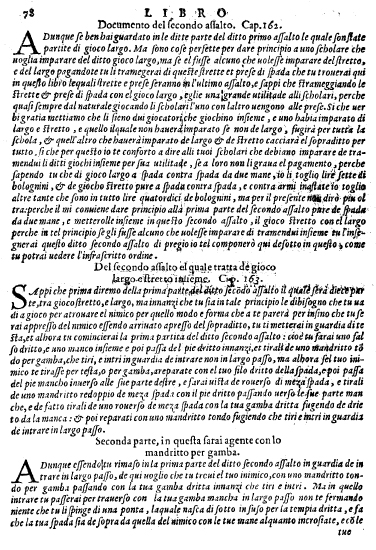 78 LIBRO
Documento del secondo assalto. Cap. 162.
ADunque se ben hai guardato in le ditte parte del ditto primo assalto le quale son state
partite di gioco largo. Ma sono cose perfette per dare principio a uno scholare che
uoglia imparare del ditto gioco largo, ma se el fusse alcuno che uolesse imparare del stretto,
e del largo pagandote tu li tramegerai di queste strette et prese di spada che tu trouerai qui
in questo libro le quali strette e prese seranno in l'ultimo assalto, e sappi che strameggiando le
strette & e prese di spada con el gioco largo, egli e una grande utilitade alli scholari, perche
quasi sempre dal naturale giocando li scholari l'uno con l'altro uengono alle prese. Si che uer
bi gratia mettiamo che li sieno dui giocatori che giochino insieme, e uno habbia imparato di
largo e stretto, e quello il quale non hauerà imparato se non de largo, fugirà per tutta la
schola, & quell'altro che hauerà imparato de largo & de stretto cacciarà el sopraditto per
tutto, si che per questo io te conforto a dire alli tuoi scholari che debiano imparare de tra-
mendui li ditti giochi insieme per sua utilitade, se a loro non li graua el pagamento, perche
sapendo tu che di gioco largo a spada contra spada da due mane, io li toglio lire sette di
bolognini, & de giocho stretto pure a spada contra spada, e contra armi inastate io toglio
altre tante che sono in tutto lire quatordici de bolognini, ma per il presente non dirò piu ol
tra: perche il mi conuiene dare principio alla prima parte del secondo assalto pure de spada
da due mane, e metterolle insieme in questo secondo assalto, il gioco stretto con el largo
perche in tel principio se gli fusse alcuno che uolesse imparare di tramendui insieme tu l'inse-
gnerai questo ditto secondo assalto di pregio io tel componerò qui desotto in questo, come
tu potrai uedere l'infrascritto ordine.
Del secondo assalto el quale tratta de gioco
largo e stretto insieme. Cap. 163.
SAppi che prima diremo della prima parte del ditto secondo assalto il quale serà diece par
te, tra gioco stretto, e largo, ma innanzi che tu sia in tale principio le disogno che tu ua
di a gioco per atrouare el nimico per quello modo e forma che a te parerà per insino che tu se
rai appresso del nimico essendo arriuato apresso del sopraditto, tu ti metterai in guardia di te
sta, et alhora tu comincierai la prima partita del ditto secondo assalto: cioè tu farai uno fal
so dritto, e uno manco insieme e poi passa del pie dritto innanzi, et tirali de uno mandritto tõ
do per gamba, che tiri, e intri in guardia de intrare non in largo passo, ma alhora sel tuo inimi-
co te tirasse per testa, o per gamba, areparate con el tuo filo dritto della spada, e poi passa
del pie mancho inuerso alle sue parte destre, e farai uista de rouerso di meza spada, e tirali
de uno mandritto redoppio de meza spada con il pie dritto passando uerso le sue parte man
che, e de fatto tirali de uno rouerso de meza spada con la tua gamba dritta fugendo de drie
to da la manca: & poi repararti con uno mandritto tondo fugiendo che tiri e intri in guardia
de intrare in largo passo.
Seconda parte, in questa sarai agente con lo
mandritto per gamba.
ADunque essendo tu rimaso in la prima parte del ditto secondo assalto in guardia de in
trare in largo passo, de qui uoglio che tu troui el tuo inimico, con uno mandritto ton-
do per gamba passando con la tua gamba dritta innanzi che tiri, & intri. Ma in quello
intrare tu passerai per trauerso con la tua gamba mancha in largo passo non te fermando
niente che tu li spinge di una ponta, laquale nasca di sotto in suso per la tempia dritta, e fa
che la tua spada sia de sopra da quella del nimico con le tue mane alquanto incrosiate, e cõ le
tue